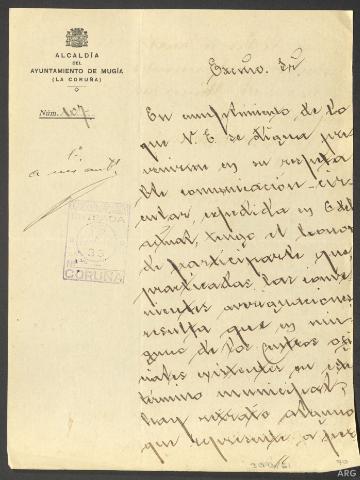 ALCALDÍA
DEL
AYUNTAMIENTO DE MUGÍA
(LA CORUÑA)
Núm. 107.
Excmo. Sr
En cumplimiento de lo
que V. E. se digna pre
venirme en su respeta
ble comunicación-cir-
cular, expedida en 6 del
actual, tengo el honor
de participarle que,
practicadas las conve
nientes averiguaciones
resulta que en nin-
guno de los centros ofi
ciales existentes en este
término municipal,
hay retrato alguno
que represente a per
ENTRADA
33
CORUÑA
ARG